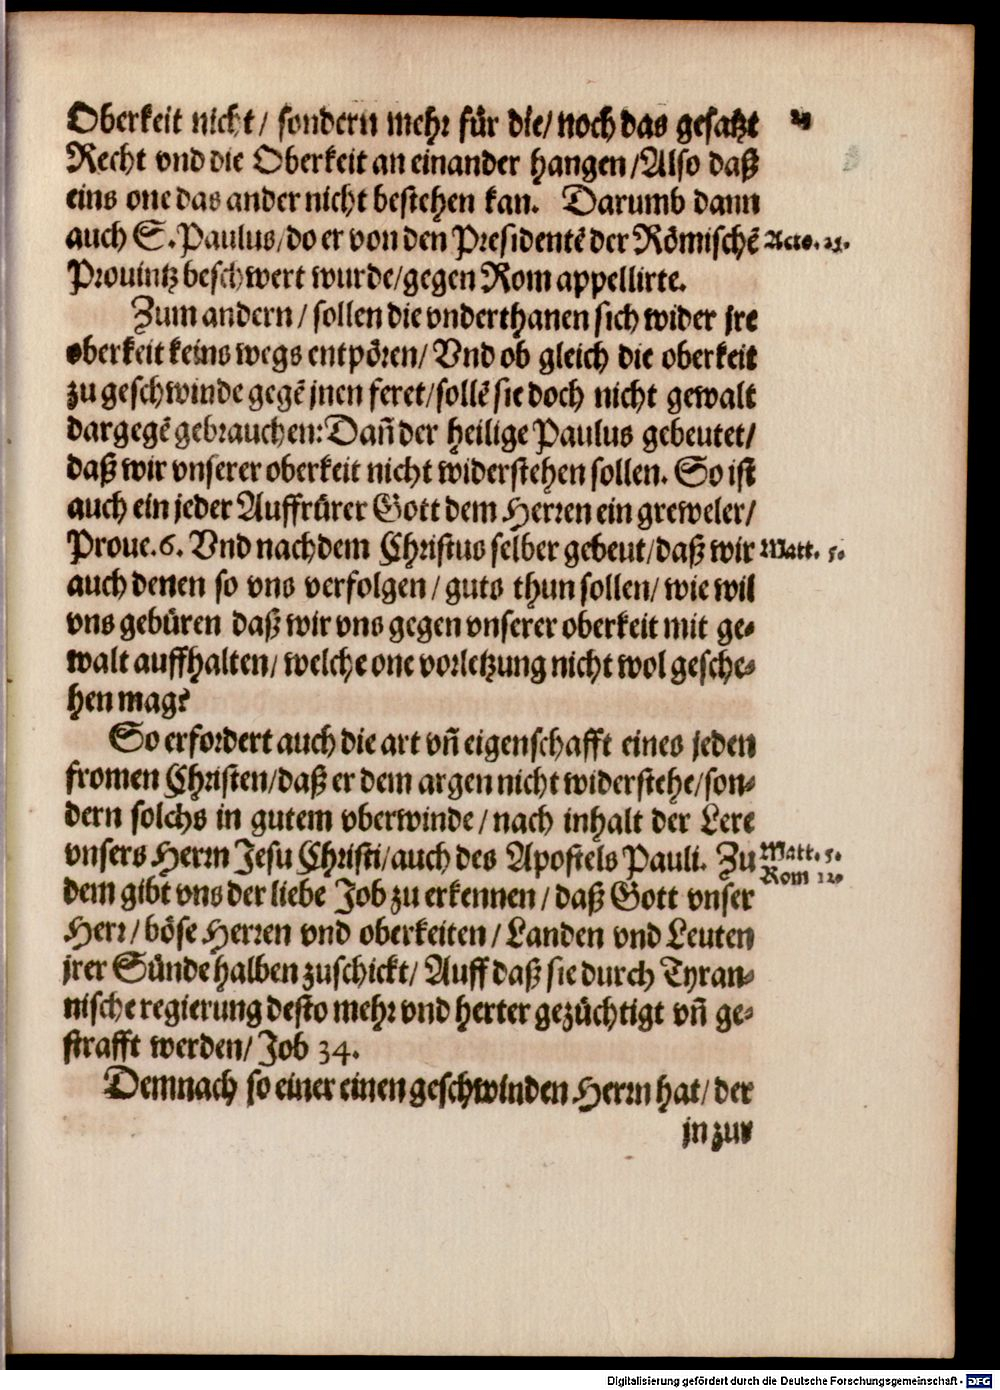 Oberkeit nicht/ sondern mehr für die/ noch das gesatzt
Recht vnd die Oberkeit an einander hangen/ Also daß
eins one das ander nicht bestehen kan. Darumb dann
auch S. Paulus/ do er von den Presidentẽ der Römischẽ Acto. 25.
Prouintz beschwert wurde/ gegen Rom appellirte.
Zum andern/ sollen die vnderthanen sich wider jre
oberkeit keins wegs entpören/ Vnd ob gleich die oberkeit
zu geschwinde gegẽ jnen feret/ sollẽ sie doch nicht gewalt
dargegẽ gebrauchen: Dañ der heilige Paulus gebeutet/
daß wir vnserer oberkeit nicht widerstehen sollen. So ist
auch ein jeder Auffrürer Gott dem Herren ein greweler/
Proue. 6. Vnd nach dem Christus selber gebeut/ daß wir Matt. 5.
auch denen so vns verfolgen/ guts thun sollen/ wie wil
vns gebüren daß wir vns gegen vnserer oberkeit mit ge-
walt auffhalten/ welche one vorletzung nicht wol gesche-
hen mag?
So erfordert auch die art vñ eigenschafft eines jeden
fromen Christen/ daß er dem argen nicht widerstehe/ son-
dern solchs in gutem vberwinde/ nach inhalt der Lere
vnsers Herrn Jesu Christi/ auch des Apostels Pauli. Zu Matt. 5.
Rom 12.
dem gibt vns der liebe Job zu erkennen/ daß Gott vnser
Herr/ böse Herren vnd oberkeiten/ Landen vnd Leuten
jrer Sünde halben zuschickt/ Auff daß sie durch Tyran-
nische regierung desto mehr vnd herter gezüchtigt vñ ge-
strafft werden/ Job 34.
Demnach so einer einen geschwinden Herrn hat/ der
jn zur
Digitalisierung gefördert durch die Deutsche Forschungsgemeinschaft - DFG